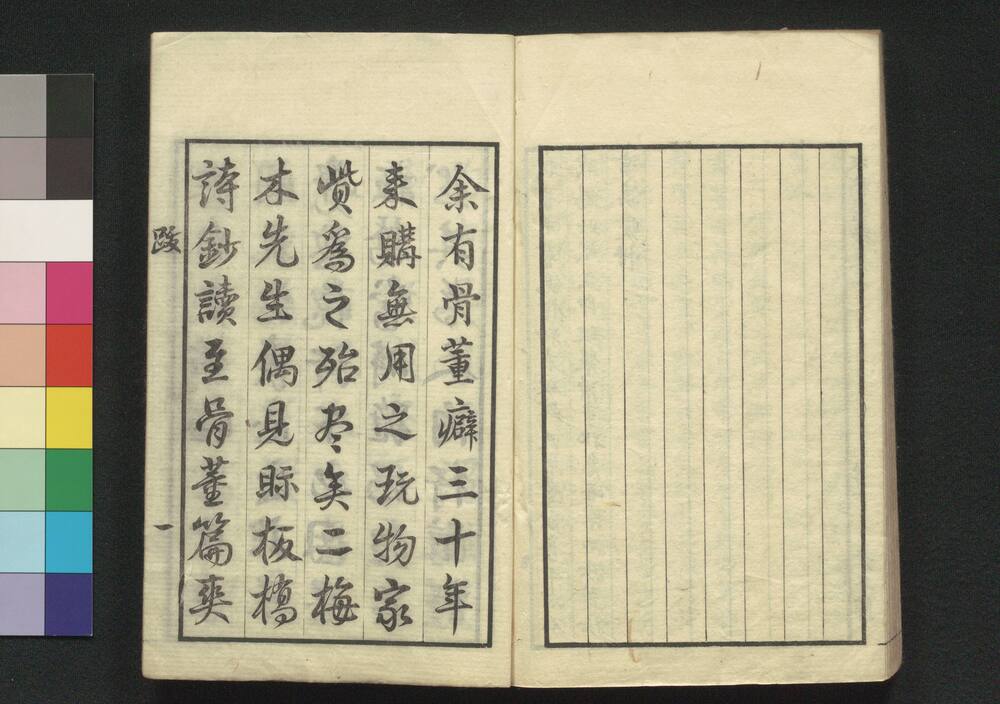 余有骨董癖三十年
来購無用之玩物家
貲為之殆尽矣二梅
木先生偶見眎板橋
詩鈔讀至骨董篇爽
跋 一